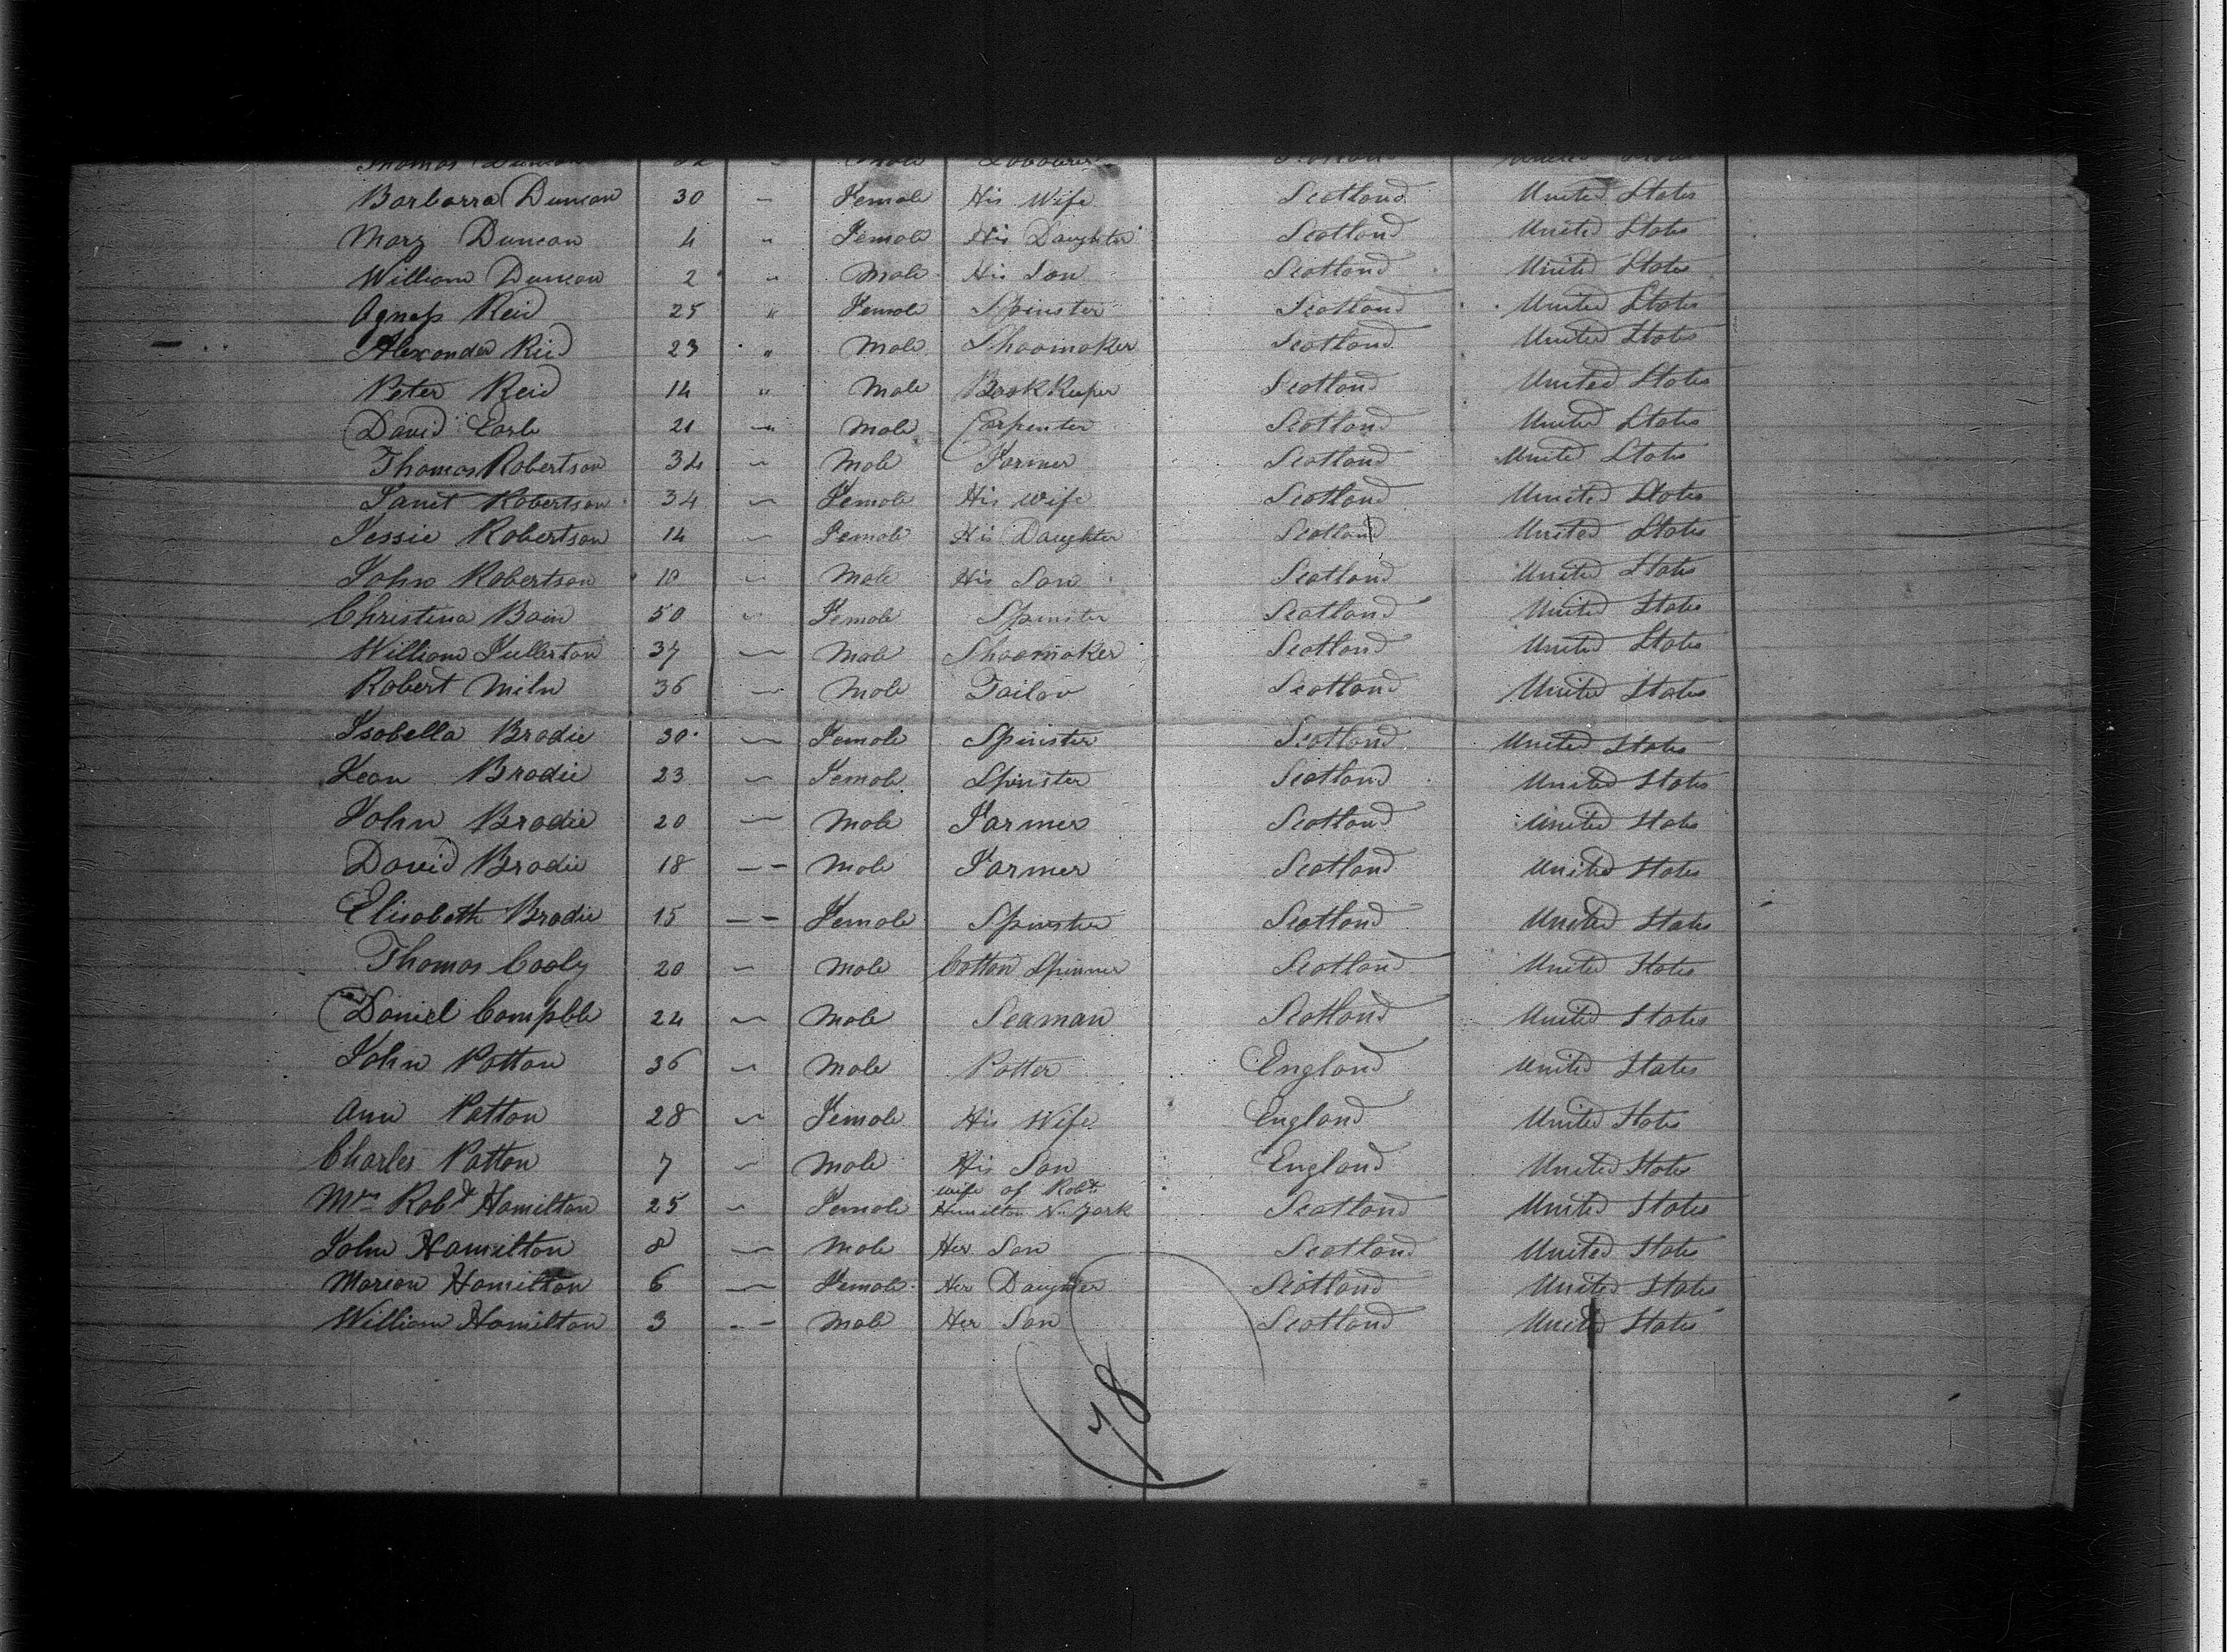 Thomas Duncan 32 " Male Labourer Scotland United States
Barbarra Duncan 30 " Female His Wife Scotland United States
Mary Duncan 4 " Female His Daughter Scotland United States
William Duncan 2 " Male His Son Scotland United States
Agness Reid 25 " Female Spinster Scotland United States
Alexander Reid 23 " Male Shoomaker Scotland United States
Peter Reid 14 " Male Book Keeper Scotland United States
David Earle 21 " Male Carpenter Scotland United States
Thomas Robertson 34 " Male Farmer Scotland United States
Janet Robertson 34 " Female His wife Scotland United States
Jessie Robertson 14 " Female His Daughter Scotland United States
John Robertson 10 " Male His Son Scotland United States
Christina Bain 50 " Female Spinster Scotland United States
William Fullerton 37 " Male Shoomaker Scotland United States
Robert Miln 36 " Male Tailor Scotland United States
Isabella Brodie 30 " Female Spinster Scotland United States
Jean Brodie 23 " Female Spinster Scotland United States
John Brodie 20 " Male Farmer Scotland United States
David Brodie 18 " Male Farmer Scotland United States
Elisabeth Brodie 15 " Female Spinster Scotland United States
Thomas Cooly 20 " Male Cotton Spinner Scotland United States
Daniel Campble 24 " Male Seaman Scotland United States
John Patton 36 " Male Potter England United States
Ann Patton 28 " Female His Wife England United States
Charles Patton 7 " Male His Son England United States
Mrs Robt Hamilton 25 " Female wife of Robt Hamilton N. York Scotland United States
John Hamilton 8 " Male Her Son Scotland United States
Marion Hamilton 6 " Female Her Daughter Scotland United States
William Hamilton 3 " Male Her Son Scotland United States
78